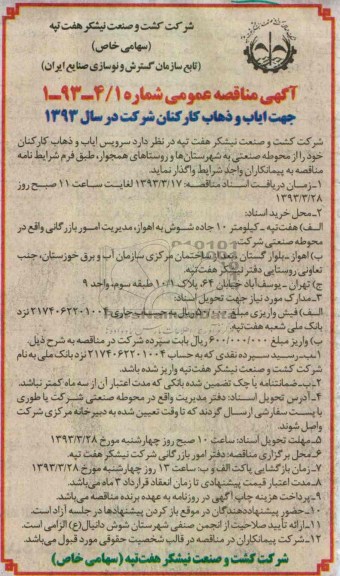 شرکت کشت و صنعت نیشکر هفت تپه
(سهامی خاص)
(تابع سازمان گسترش و نوسازی صنایع ایران)
آگهی مناقصه عمومی شماره ۴/۱-۹۳-۱
جهت ایاب و ذهاب کارکنان شرکت در سال ۱۳۹۳
شرکت کشت و صنعت نیشکر هفت تپه در نظر دارد سرویس ایاب و ذهاب کارکنان
خود را از محوطه صنعتی به شهرستان‌ها و روستاهای همجوار، طبق فرم شرایط نامه
مناقصه به پیمانکاران واجد شرایط واگذار نماید.
۱-زمان دریافت اسناد مناقصه: ۱۳۹۳/۳/۱۷ لغایت ساعت ۱۱ صبح روز
۱۳۹۳/۳/۲۸
۲-محل خرید اسناد:
الف) هفت‌تپه - کیلومتر ۱۰ جاده شوش به اهواز، مدیریت امور بازرگانی واقع در
محوطه صنعتی شرکت.
ب) اهواز-بلوار گلستان ساختمان مرکزی سازمان آب و برق خوزستان، جنب
تعاونی روستایی دفتر نیشکر هفت‌تپه.
ج) تهران - یوسف‌آباد خیابان ۶۴، پلاک ۱۰/۱ طبقه سوم، واحد ۹
۳-مدارک مورد نیاز جهت تحویل اسناد:
الف) فیش واریزی مبلغ ریال به حساب جاری ۲۱۷۴۰۶۲۲۰۱۰۰۴ نزد
بانک ملی شعبه هفت‌تپه.
ب) واریز مبلغ ۶۰۰/۰۰۰/۰۰۰ ریال بابت سپرده شرکت در مناقصه به شرح ذیل.
۱-ب-رسید سپرده نقدی که به حساب ۲۱۷۴۰۶۲۲۰۱۰۰۴ نزد بانک ملی به نام
شرکت کشت و صنعت نیشکر هفت‌تپه واریز شده باشد.
۲-ب-ضمانتنامه یا چک تضمین شده بانکی که مدت اعتبار آن از سه ماه کمتر نباشد.
۴-آدرس تحویل اسناد: دفتر مدیریت واقع در محوطه صنعتی شرکت یا طوری
با پست سفارشی ارسال گردند که تا وقت تعیین شده به دبیرخانه مرکزی شرکت
واصل شوند.
۵-مهلت تحویل اسناد: ساعت ۱۰ صبح روز چهارشنبه مورخ ۱۳۹۳/۳/۲۸
۶-محل برگزاری مناقصه: دفتر امور بازرگانی شرکت نیشکر هفت تپه.
۷-زمان بازگشایی پاکت الف و ب: ساعت ۱۳ روز چهارشنبه مورخ ۱۳۹۳/۳/۲۸
۸-مدت اعتبار قیمت پیشنهادی تا زمان انعقاد قرارداد ۳ ماه می‌باشد.
۹-پرداخت هزینه چاپ آگهی در روزنامه به عهده برنده مناقصه می‌باشد.
۱۰-حضور پیشنهاددهندگان در موقع باز کردن پیشنهادها در جلسه آزاد است.
۱۱-ارائه تأیید صلاحیت از انجمن صنفی شهرستان شوش دانیال(ع) الزامی است.
۱۲-شرکت پیمانکاران در مناقصه در قالب شخصیت حقوقی مورد قبول می‌باشد.
شرکت کشت و صنعت نیشکر هفت‌تپه (سهامی خاص)